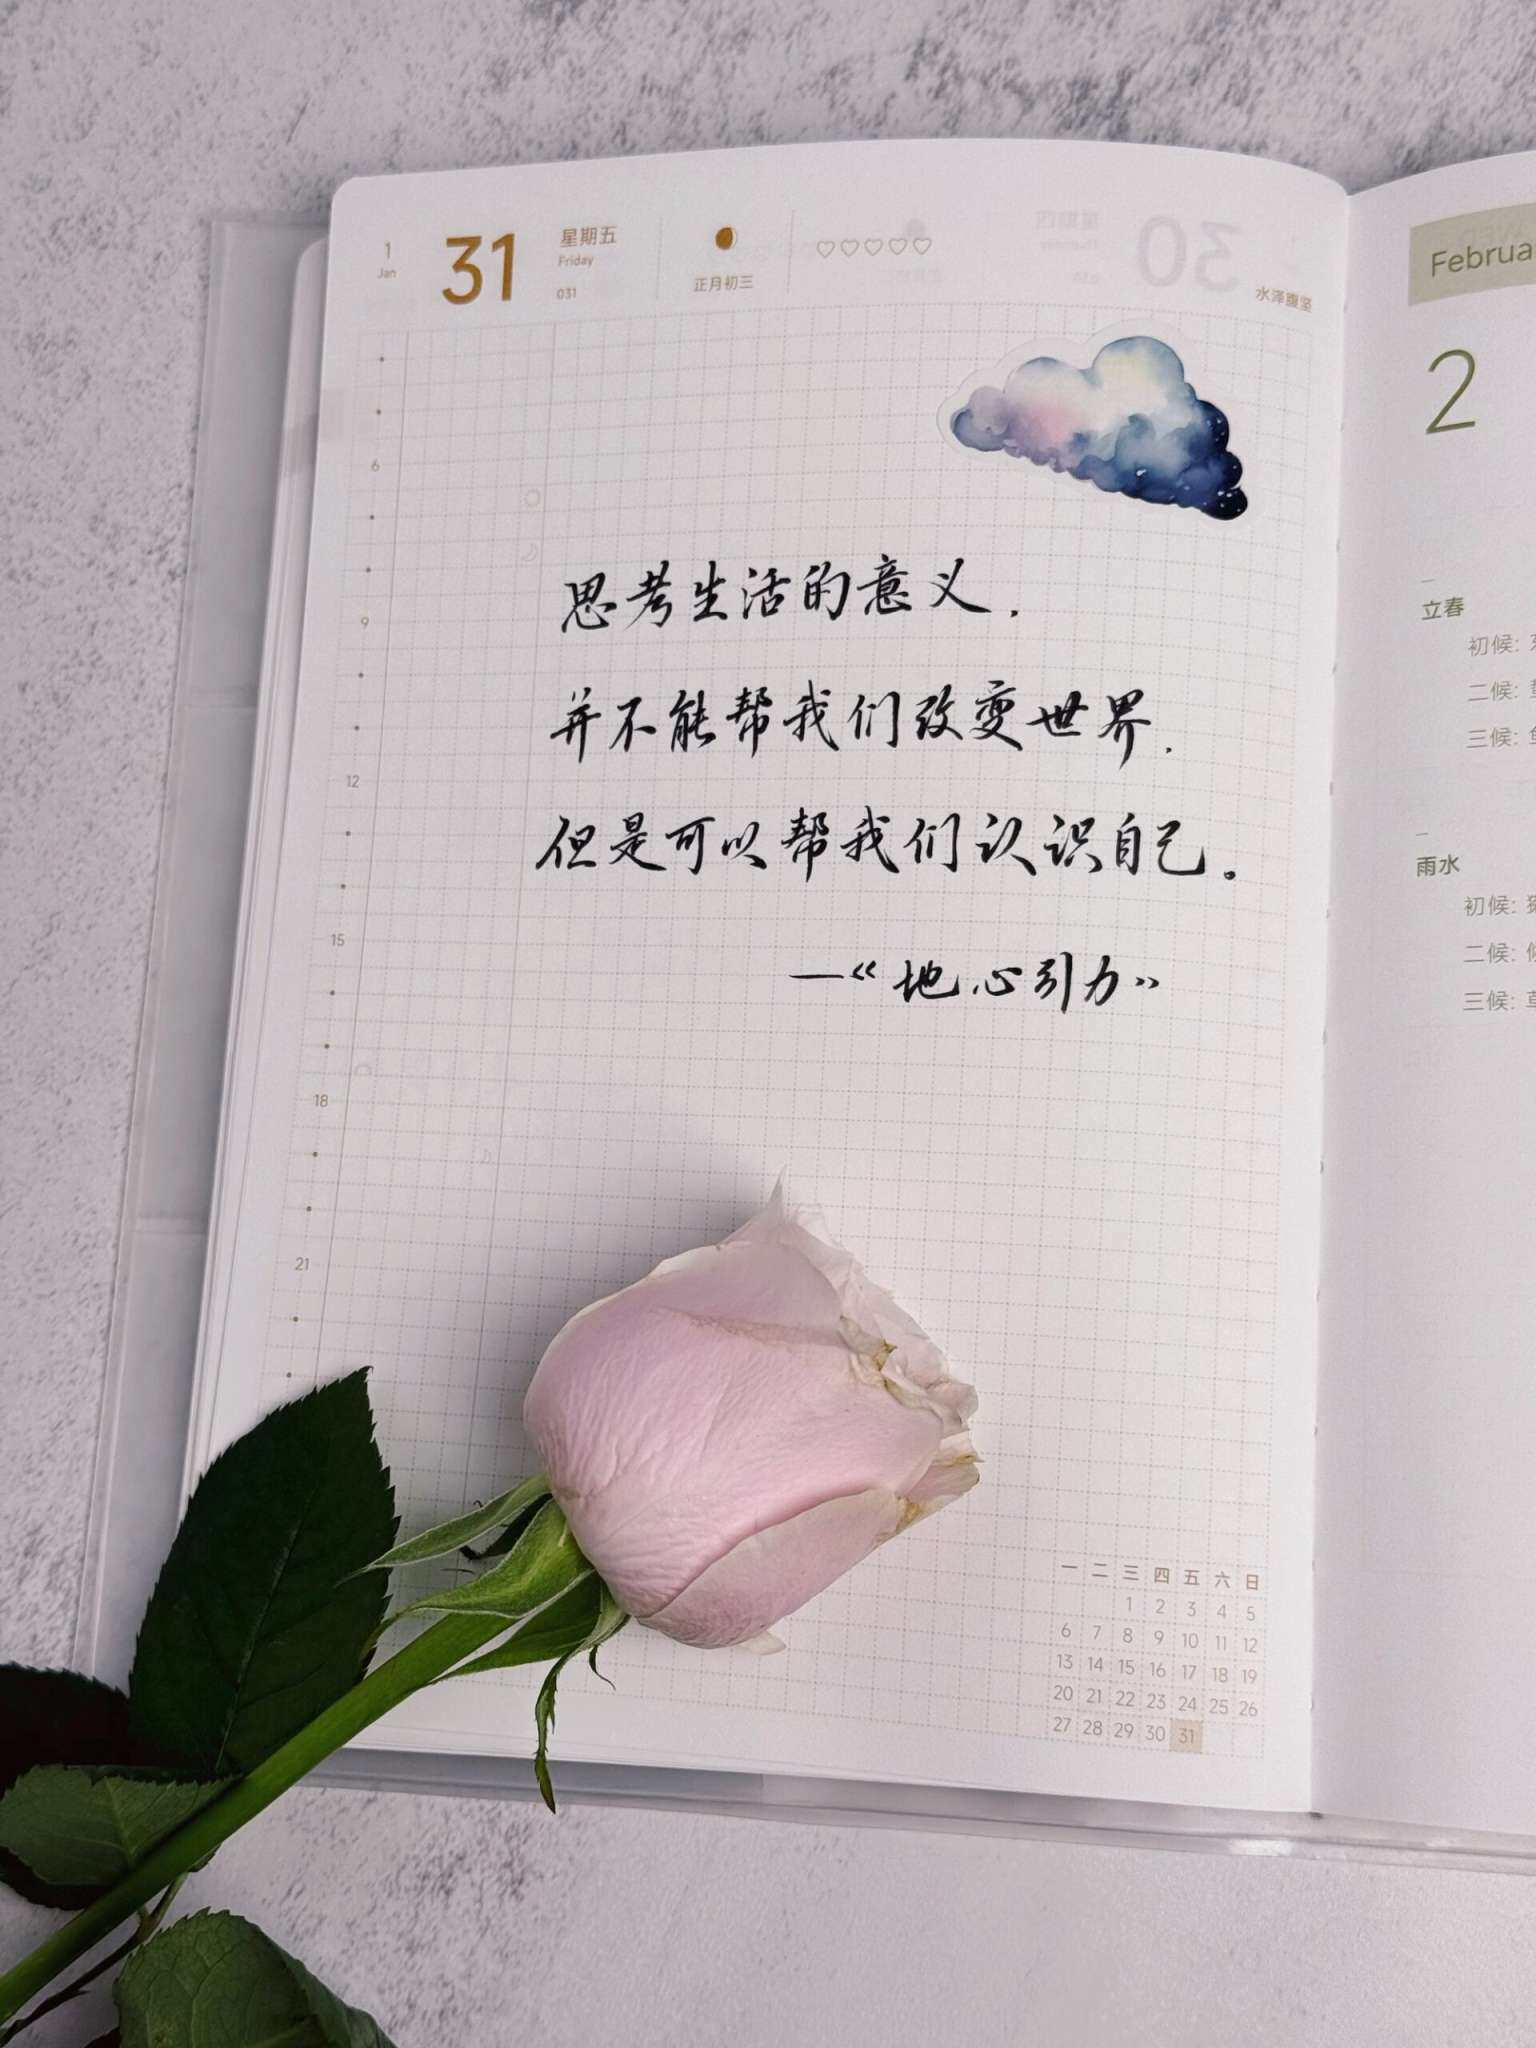 1
Jan
31
星期五
Friday
031
正月初三
水泽腹坚
6
9
12
15
18
21
思考生活的意义，
并不能帮我们改变世界，
但是可以帮我们认识自己。
—《地心引力》
一 二 三 四 五 六 日
1 2 3 4 5
6 7 8 9 10 11 12
13 14 15 16 17 18 19
20 21 22 23 24 25 26
27 28 29 30 31
2
立春
初候:
二候:
三候:
雨水
初候:
二候:
三候: